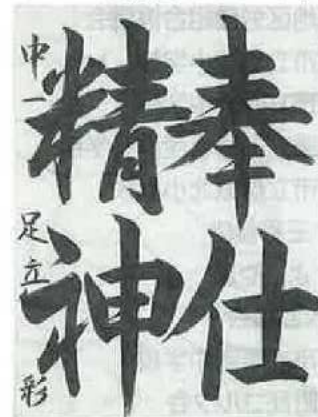 奉仕
精神
中一 足立 彩